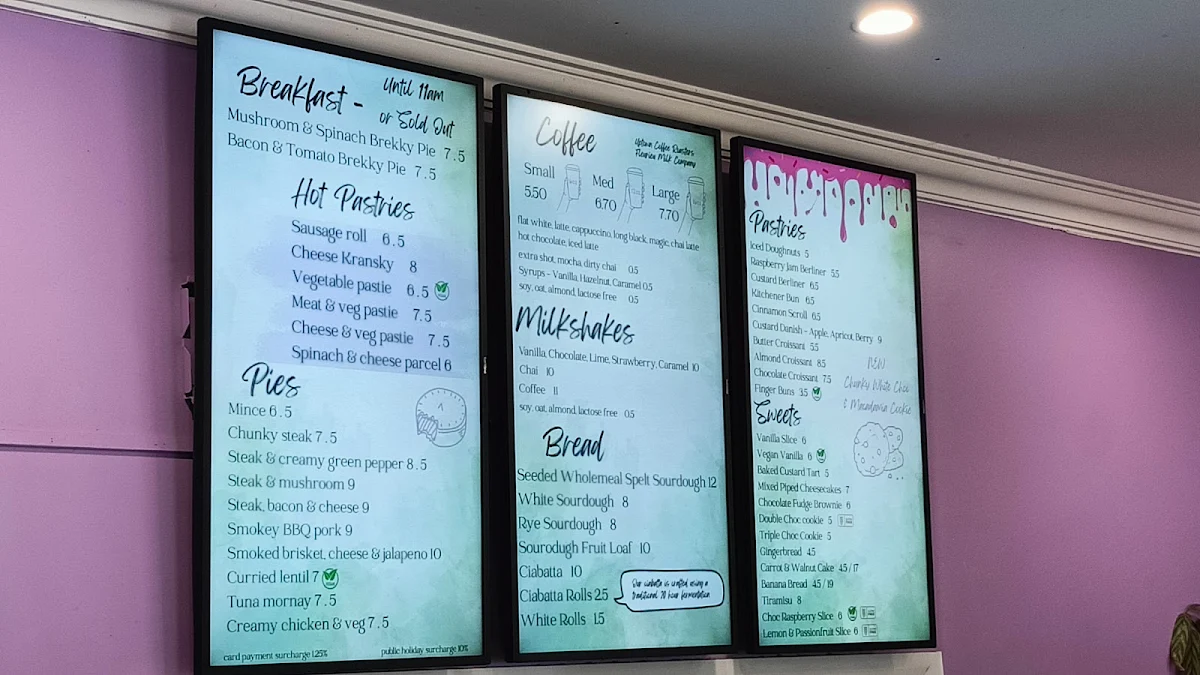 Breakfast - Until 11am
or Sold Out
Mushroom & Spinach Brekky Pie 7.5
Bacon & Tomato Brekky Pie 7.5
Hot Pastries
Sausage roll 6.5
Cheese Kransky 8
Vegetable pastie 6.5
Meat & veg pastie 7.5
Cheese & veg pastie 7.5
Spinach & cheese parcel 6
Pies
Mince 6.5
Chunky steak 7.5
Steak & creamy green pepper 8.5
Steak & mushroom 9
Steak, bacon & cheese 9
Smokey BBQ pork 9
Smoked brisket, cheese & jalapeno 10
Curried lentil 7
Tuna mornay 7.5
Creamy chicken & veg 7.5
card payment surcharge 1.25% public holiday surcharge 10%
Coffee
Coffee Roasters
Fleurieu Milk Company
Small Med Large
5.50 6.70 7.70
flat white, latte, cappuccino, long black, magic, chai latte
hot chocolate, iced latte
extra shot, mocha, dirty chai 0.5
Syrups - Vanilla, Hazelnut, Caramel 0.5
soy, oat, almond, lactose free 0.5
Milkshakes
Vanilla, Chocolate, Lime, Strawberry, Caramel 10
Chai 10
Coffee 11
soy, oat, almond, lactose free 0.5
Bread
Seeded Wholemeal Spelt Sourdough 12
White Sourdough 8
Rye Sourdough 8
Sourodugh Fruit Loaf 10
Ciabatta 10
Ciabatta Rolls 2.5
White Rolls 1.5
Our ciabatta is crafted using a
traditional 20 hour fermentation
Pastries
Iced Doughnuts 5
Raspberry Jam Berliner 5.5
Custard Berliner 6.5
Kitchener Bun 6.5
Cinnamon Scroll 6.5
Custard Danish - Apple, Apricot, Berry 9
Butter Croissant 5.5
Almond Croissant 8.5
Chocolate Croissant 7.5
Finger Buns 3.5
NEW
Chunky White Choc
& Macadamia Cookie
Sweets
Vanilla Slice 6
Vegan Vanilla 6
Baked Custard Tart 5
Mixed Piped Cheesecakes 7
Chocolate Fudge Brownie 6
Double Choc cookie 5
Triple Choc Cookie 5
Gingerbread 4.5
Carrot & Walnut Cake 4.5 / 17
Banana Bread 4.5 / 19
Tiramisu 8
Choc Raspberry Slice 6
Lemon & Passionfruit Slice 6